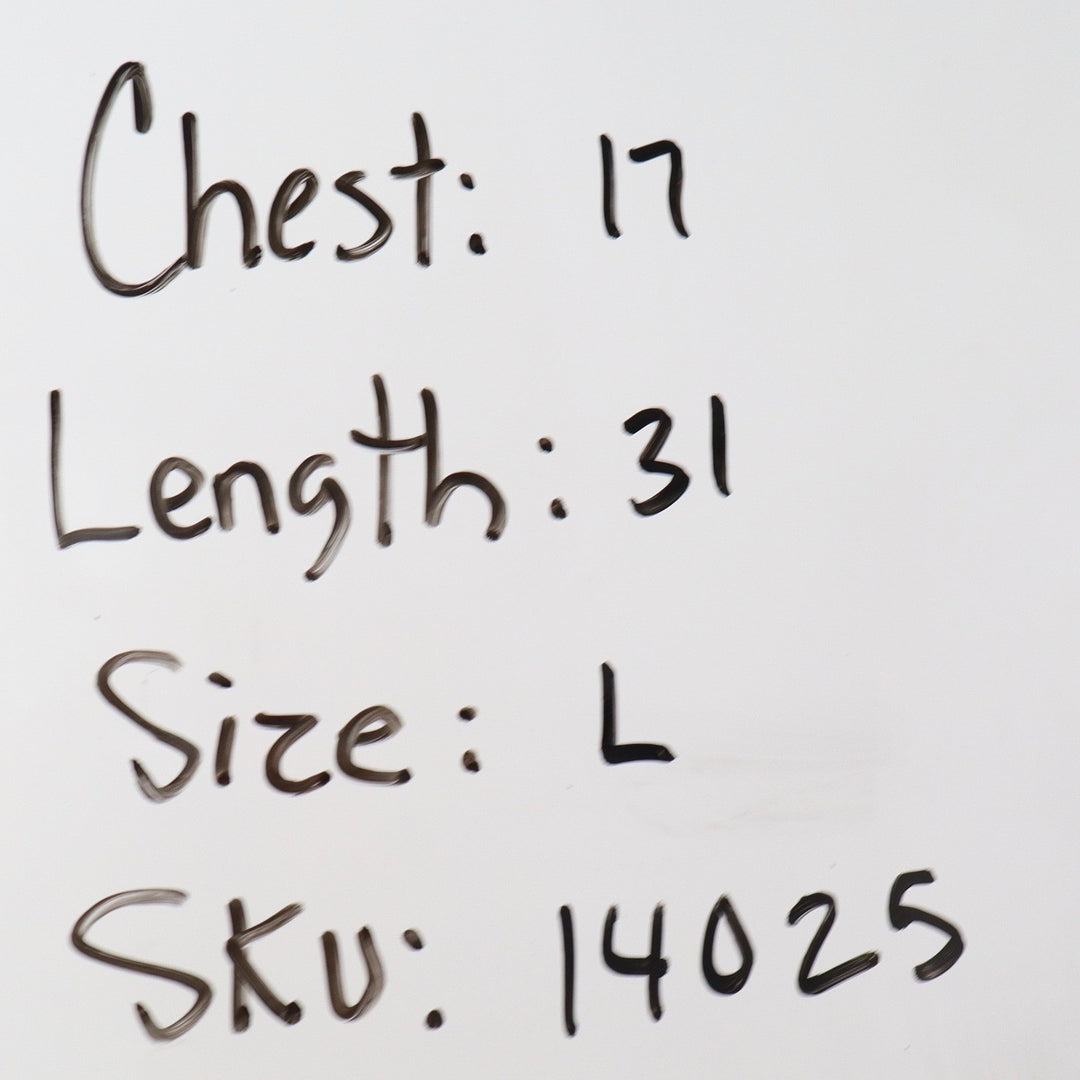 Chest: 17
Length: 31
Size: L
SKU: 14025